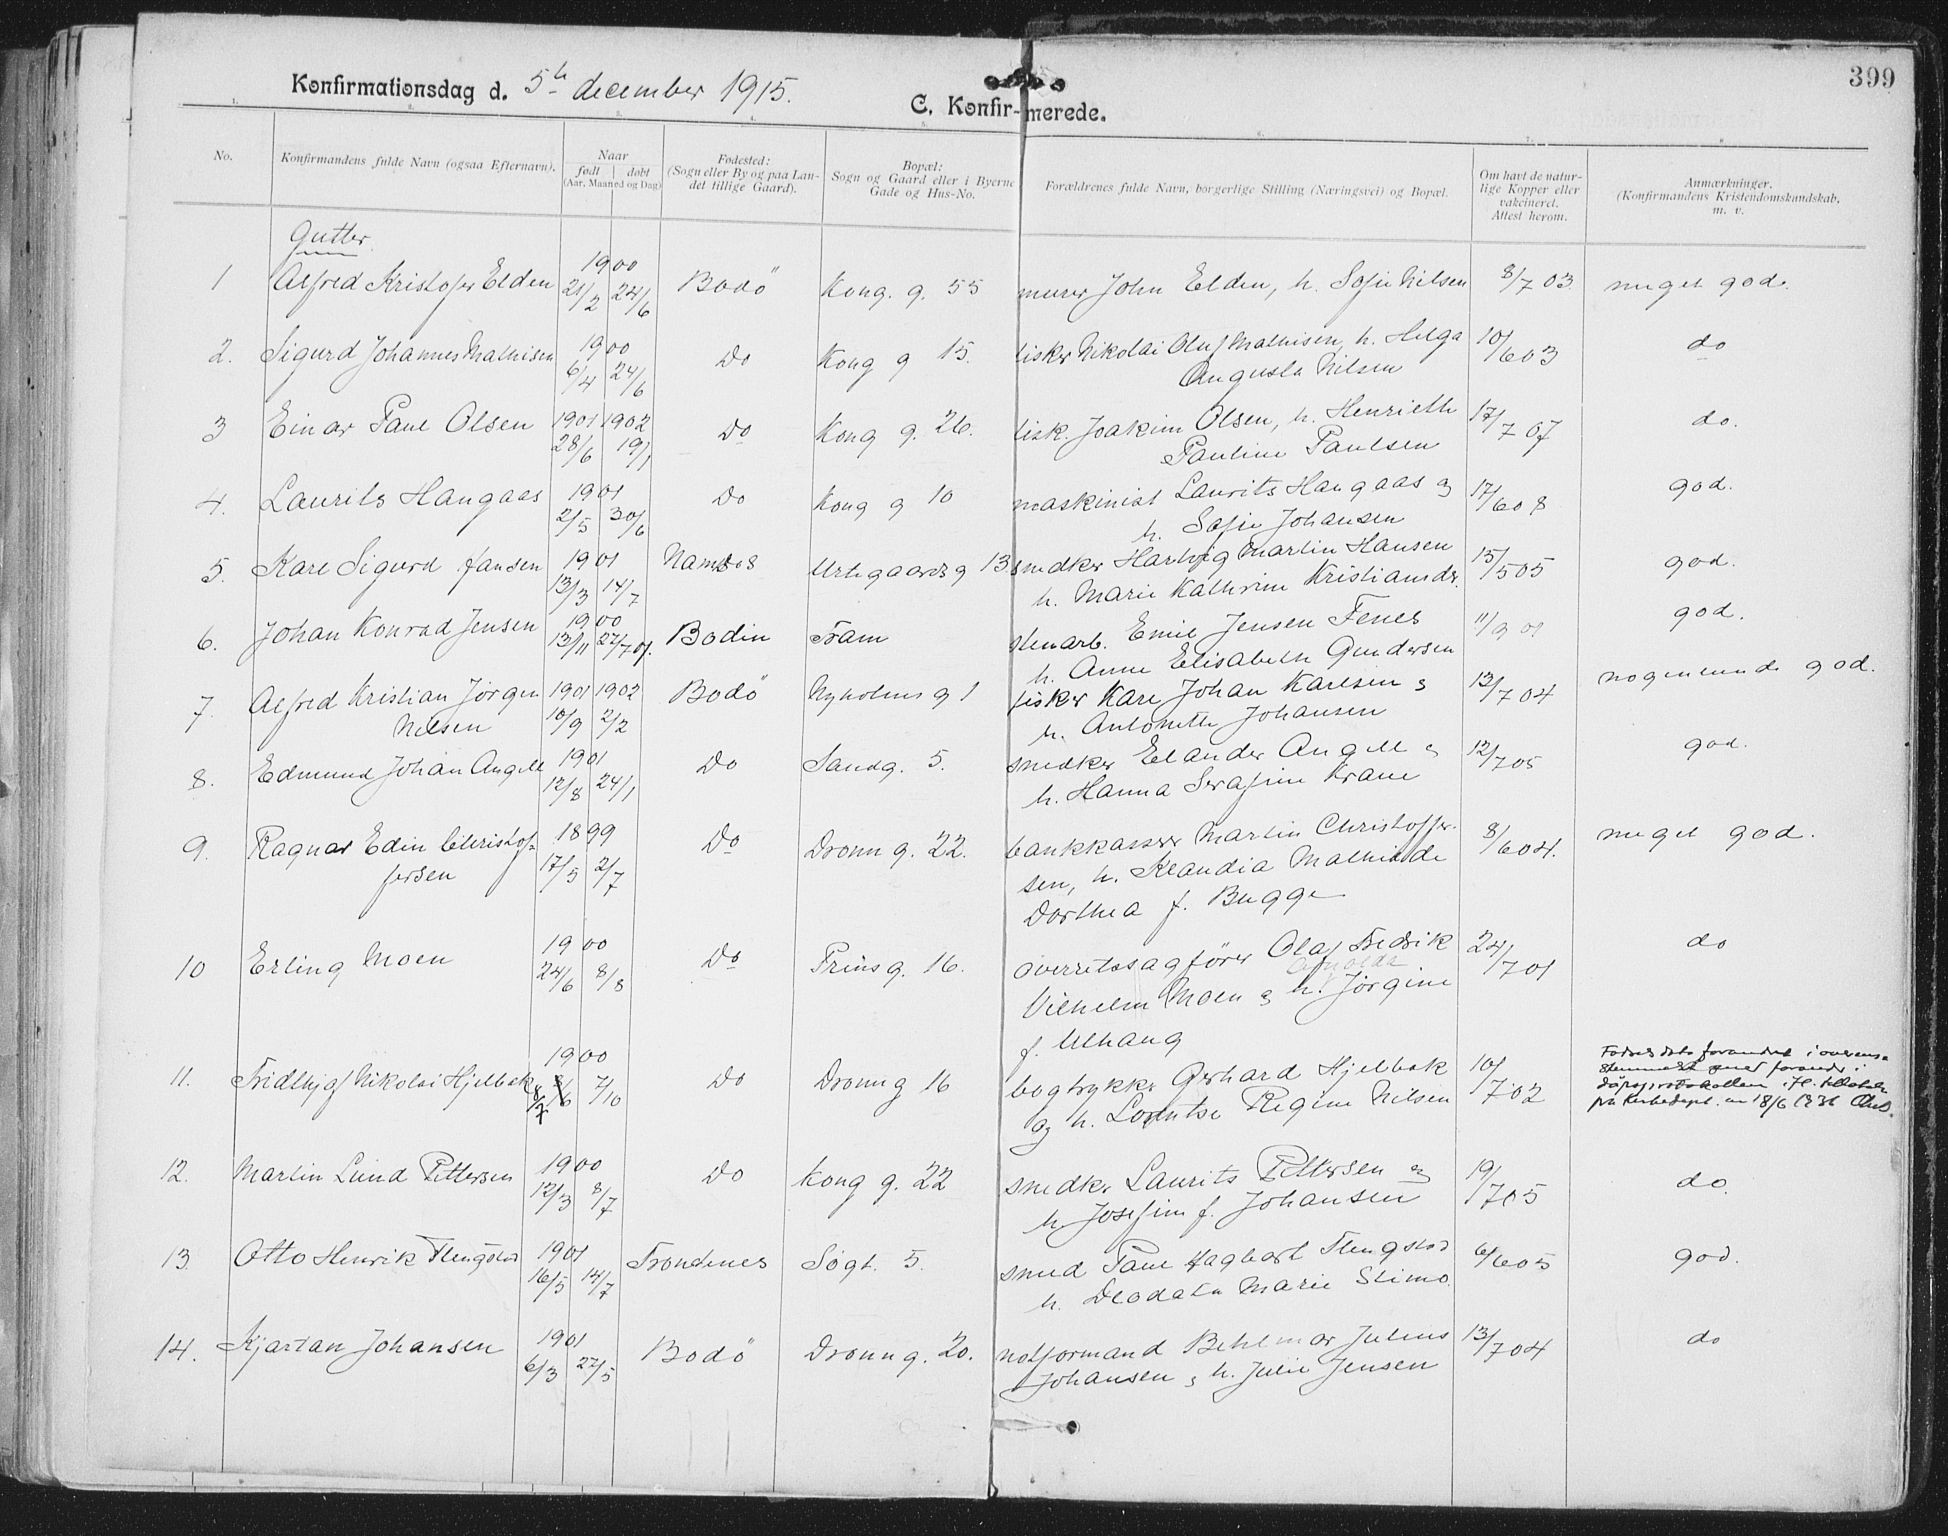 Konfirmationsdag d. 5te december 1915.
C. Konfirmerede.
399
No.
Konfirmandens fulde Navn (ogsaa Efternavn).
Naar
født | døbt
(Aar, Maaned og Dag)
Fødested:
(Sogn eller By og paa Landet tillige Gaard).
Bopæl:
Sogn og Gaard eller i Byerne
Gade og Hus-No.
Forældrenes fulde Navn, borgerlige Stilling (Næringsvei) og Bopæl.
Om havt de naturlige Kopper eller
vakcineret.
Attest herom.
Anmærkninger.
(Konfirmandens Kristendomskundskab,
m. v.
Gutter.
1 Alfred Kristofer Elden 1900 21/2 24/6 Bodö Kong. g. 55 murer John Elden, h. Sofie Nilsen 8/7 03. meget god.
2. Sigurd Johannes Mathisen 1900 6/4 24/6 Do Kong g 15. fisker Nikolai Oluf Mathisen, h. Helga
Augusta Nilsen 10/6 03 do
3 Einar Paul Olsen 1901 28/6 1902 19/1 Do Kong g. 26. fisk. Joakim Olsen, h. Henriethe
Pauline Paulsen 17/7 07 do.
4. Laurits Haugaas 1901 2/5 30/6 Do Kong g 10 maskinist Laurits Haugaas og
h. Sofie Johansen 17/6 08 god.
5. Kare Sigurd Hansen 1901 13/3 14/7 Urtegaardsg 13 snedker Hartvig Martin Hansen
h. Marie Kathrine Kristiansdr. 15/5 05 god.
6. Johan Konrad Jensen 1900 13/11 27/7 01. Bodin Fram stenarb. Emil Jensen Fenes
h. Anne Elisabeth Gundersen 11/9 01 god.
7. Alfred Kristian Jörgen
Nilsen 1901 10/9 1902 2/2 Bodö Nyholms g 1 fisker Karl Johan Karlsen og
h. Antonette Johansen 13/7 04 nogenlunde god.
8. Edmund Johan Angell 1901 12/8 24/1 Do Sandg. 5. snedker Elander Angell og
h. Hanna Serafine Krane 12/7 05 god.
9. Ragnar Edin Christoffersen 1899 17/5 2/7 Do Dronn g. 22. bankkasserer Martin Christoffersen, h. Klaudia Mathilde
Dorthea f. Bugge 8/6 04. meget god.
10 Erling Moen 1900 24/6 8/8 Do Prinsg. 16. overretssagförer Olaf Fredrik
Vilhelm Moen og h. Jörgine
f. Ulhaug 24/7 01 do
11. Fridthjof Nikolai Hjelbak 1900 8/7 7/10 Do Dronn g 16 bogtrykker Gerhard Hjelbak
og h. Lorntse Regine Nilsen 10/7 02 Fødselsdato forandret i overens=
stemmelse
dåpsprotokollen
18/6 1936
12. Martin Lund Pettersen 1900 12/3 8/7 Do Kong g. 22 snedker Laurits Pettersen og
h. Josefine f. Johansen 19/7 05 do.
13. Otto Henrik Flengstad 1901 16/5 14/7 Trondenes Søgt. 5. smed Paul Hagbart Flengstad
h. Deodata Marie Stimo. 6/6 05 god.
14. Kjartan Johansen 1901 6/3 27/5 Bodö Dronn g. 20. notformand Julius
Johansen og h. Julie Jensen 13/7 04 do